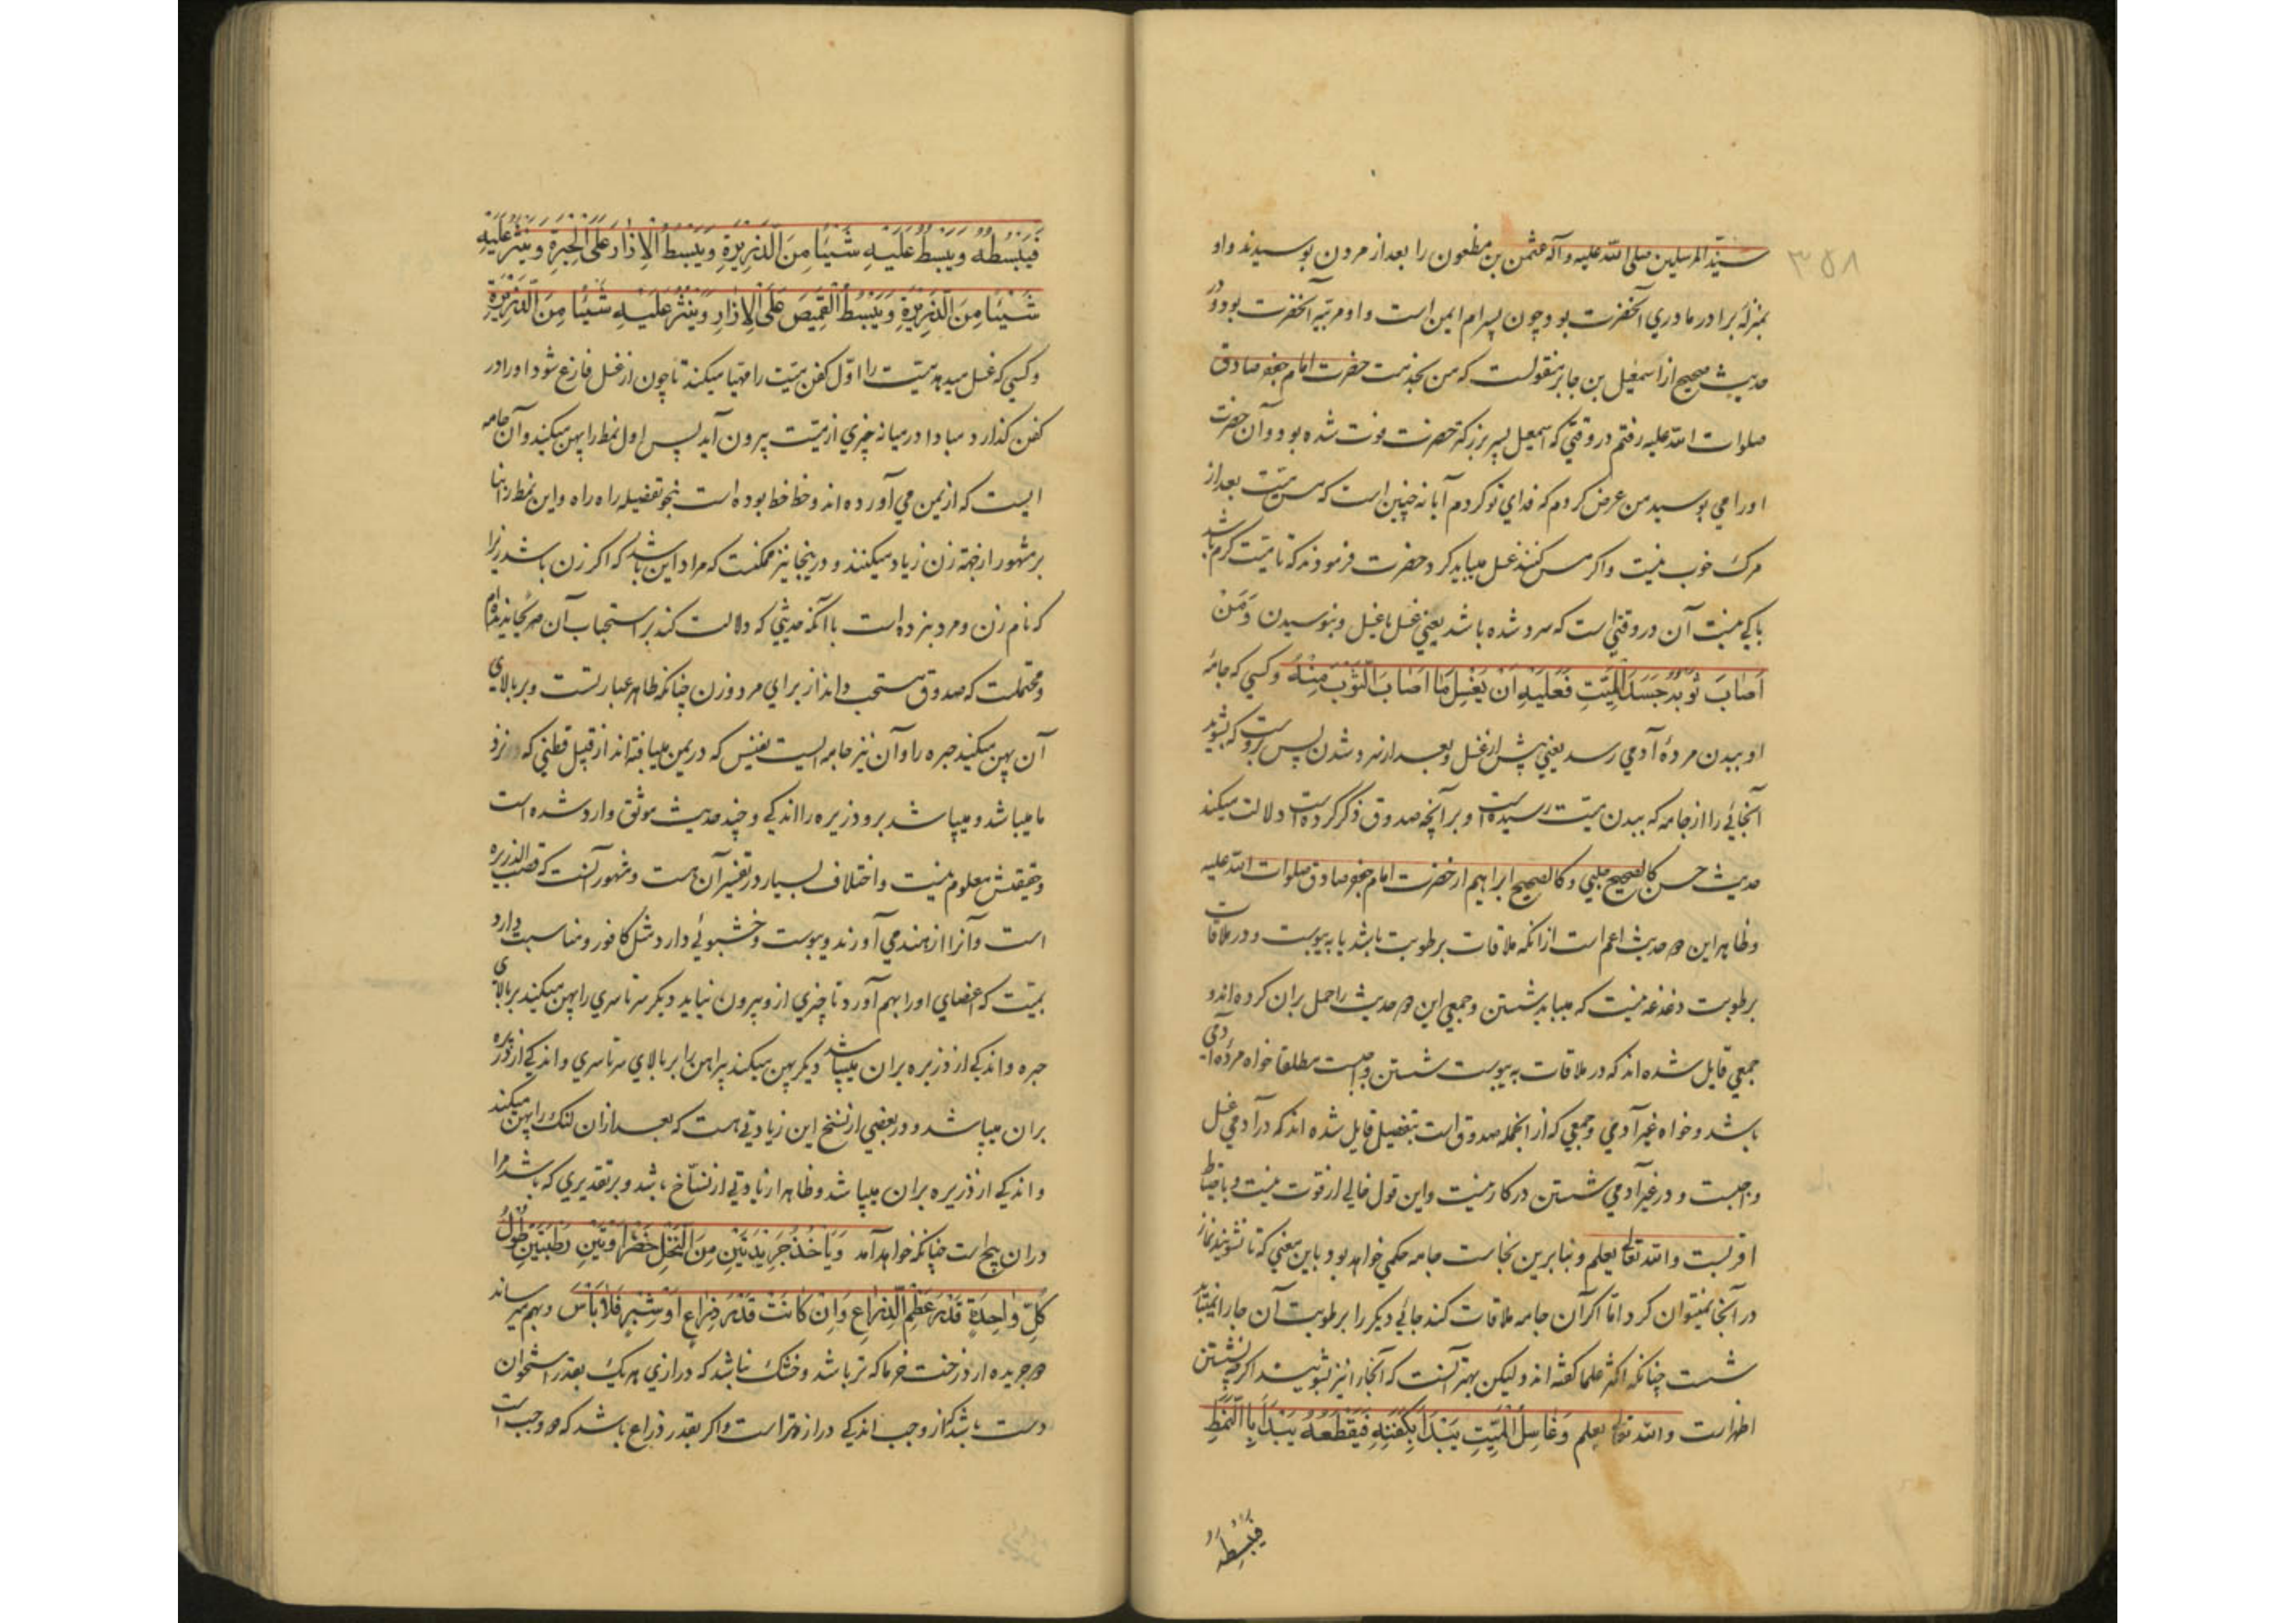 ۳۵۸
سید المرسلین صلی الله علیه وآله عثمن بن مظعون را بعد از مردن بوسیدند واو
بمنزلهٔ برادر مادری آنحضرت بود چون پسر ام ایمن است و او مربیه آنحضرت بود و در
حدیث صحیح از اسمعیل بن جابر منقولست که من بخدمت حضرت امام جعفر صادق
صلوات الله علیه رفتم در وقتی که اسمعیل پسر بزرک حضرت فوت شده بود و آن حضرت
اورا می بوسید من عرض کردم که فدای تو کردم آیا نه چنین است که مس میت بعد از
مرک خوب نیست و اکر مس کنند غسل میباید کرد حضرت فرمودند که تا میت کرم باشد
باکی نیست آن در وقتی است که سرد شده باشد یعنی غسل با غسل و بنوسیدن وَمَنْ
اَصابَ ثَوْبُهُ جَسَدَ الْمَیِّتِ فَعَلَیْهِ اَنْ یَغْسِلَ ما اَصابَ الثَّوْبَ مِنْهُ وکسی که جامهٔ
او ببدن مردهٔ آدمی رسد یعنی پیش از غسل و بعد از سرد شدن پس بروست که بشوید
آنجائی را از جامه که ببدن میت رسیده است و بر آنچه صدوق ذکر کرده است دلالت میکند
حدیث حسن کالصحیح حلبی و کالصحیح ابراهیم از حضرت امام جعفر صادق صلوات الله علیه
وظاهر این دو حدیث اعم است از آنکه ملاقات برطوبت باشد یا به یبوست و در ملاقات
برطوبت دغدغه نیست که میباید شستن و جمعی این دو حدیث را حمل بران کرده اند و
جمعی قایل شده اند که در ملاقات به یبوست شستن واجبست مطلقا خواه مردهٔ آدمی
باشد و خواه غیر آدمی و جمعی که از آنجمله صدوق است بتفصیل قایل شده اند که در آدمی غسل
واجبست و در غیر آدمی شستن در کار نیست و این قول خالی از قوت نیست و باحتیاط
اقربست والله تعالی یعلم و بنابرین نجاست جامه حکمی خواهد بود باین معنی که تا نشویند نماز
در آنجا نمیتوان کرد اما اکر آن جامه ملاقات کند جائی دیکر را برطوبت آن جا را نمیباید
شست چنانکه اکثر علما کفته اند ولیکن بهتر آنست که آنجا را نیز بشویند اکرچه نشستن
اظهرست والله تعالی یعلم وَغاسِلُ الْمَیِّتِ یَبْدَاُ بِکَفَنِهِ فَیَقْطَعُهُ یَبْدَاُ بِالنَّمَطِ
فَیَبْسُطُهُ
فَیَبْسُطُهُ وَیَبْسُطُ عَلَیْهِ شَیْئًا مِنَ الذَّرِیرَةِ وَیَبْسُطُ الْاِزارَ عَلَی الْحِبَرَةِ وَیَنْثُرُ عَلَیْهِ
شَیْئًا مِنَ الذَّرِیرَةِ وَیَبْسُطُ الْقَمِیصَ عَلَی الْاِزارِ وَیَنْثُرُ عَلَیْهِ شَیْئًا مِنَ الذَّرِیرَةِ
وکسی که غسل میدهد میت را اوّل کفن میّت را مهیا میکند تا چون از غسل فارغ شود اورا در
کفن کذارد مبادا درمیانه چیزی از میّت بیرون آید پس اول نمط را پهن میکند و آن جامه
ایست که از یمن می آورده اند و خط خط بوده است بنحو تفضیله راه راه و این نمط را بنا
بر مشهور از جهة زن زیاد میکنند و درینجا نیز ممکنست که مراد این باشد که اکر زن باشد زیرا
که نام زن و مرد نبرده است با آنکه حدیثی که دلالت کند بر استحباب آن هم بجا نیز ندارم
ومحتملست که صدوق مستحب داند از برای مرد و زن چنانکه ظاهر عبارتست و بر بالای
آن پهن میکند حبره را و آن نیز جامه ایست نفیس که در یمن میبافته اند از قبیل قطنی که در نزد
ما میباشد و میپاشد برو ذزیره را اندکی و چند حدیث موثق وارد شده است
وحقیقتش معلوم نیست و اختلاف بسیار در تفسیر آن هست و مشهور آنست که قصب الذریره
است و آنرا از هند می آورند و یبوست و خشبوئی دارد مثل کافور و مناسبت دارد
بمیّت که اعضای اورا بهم آورد تا چیزی از و بیرون نیاید دیکر سرتاسری را پهن میکنند بر بالای
حبره و اندکی از ذزیره بران میپاشد دیکر پهن میکند پیراهن را بر بالای سرتاسری و اندکی از ذزیره
بران میپاشد و در بعضی از نسخ این زیادتی هست که بعد از ان لنک را پهن میکند
و اندکی از ذزیره بران میپاشد و ظاهرا زیادتی از نسّاخ باشد و بر تقدیری که باشد مرا
دران پیچ است چنانکه خواهد آمد وَیَاْخُذُ جَرِیدَتَیْنِ مِنَ النَّخْلِ خَضْراوَتَیْنِ رَطْبَتَیْنِ طُولُ
کُلِّ واحِدَةٍ قَدْرَ عَظْمِ الذِّراعِ وَاِنْ کانَتْ قَدْرَ ذِراعٍ اَوْ شِبْرٍ فَلا بَاْسَ و بهم میرساند
دو جریده از درخت خرما که تر باشد و خشک نباشد که درازی هر یک بقدر استخوان
دست باشد که از وجب اندکی دراز تر است و اکر بقدر ذراع باشد که دو وجب است